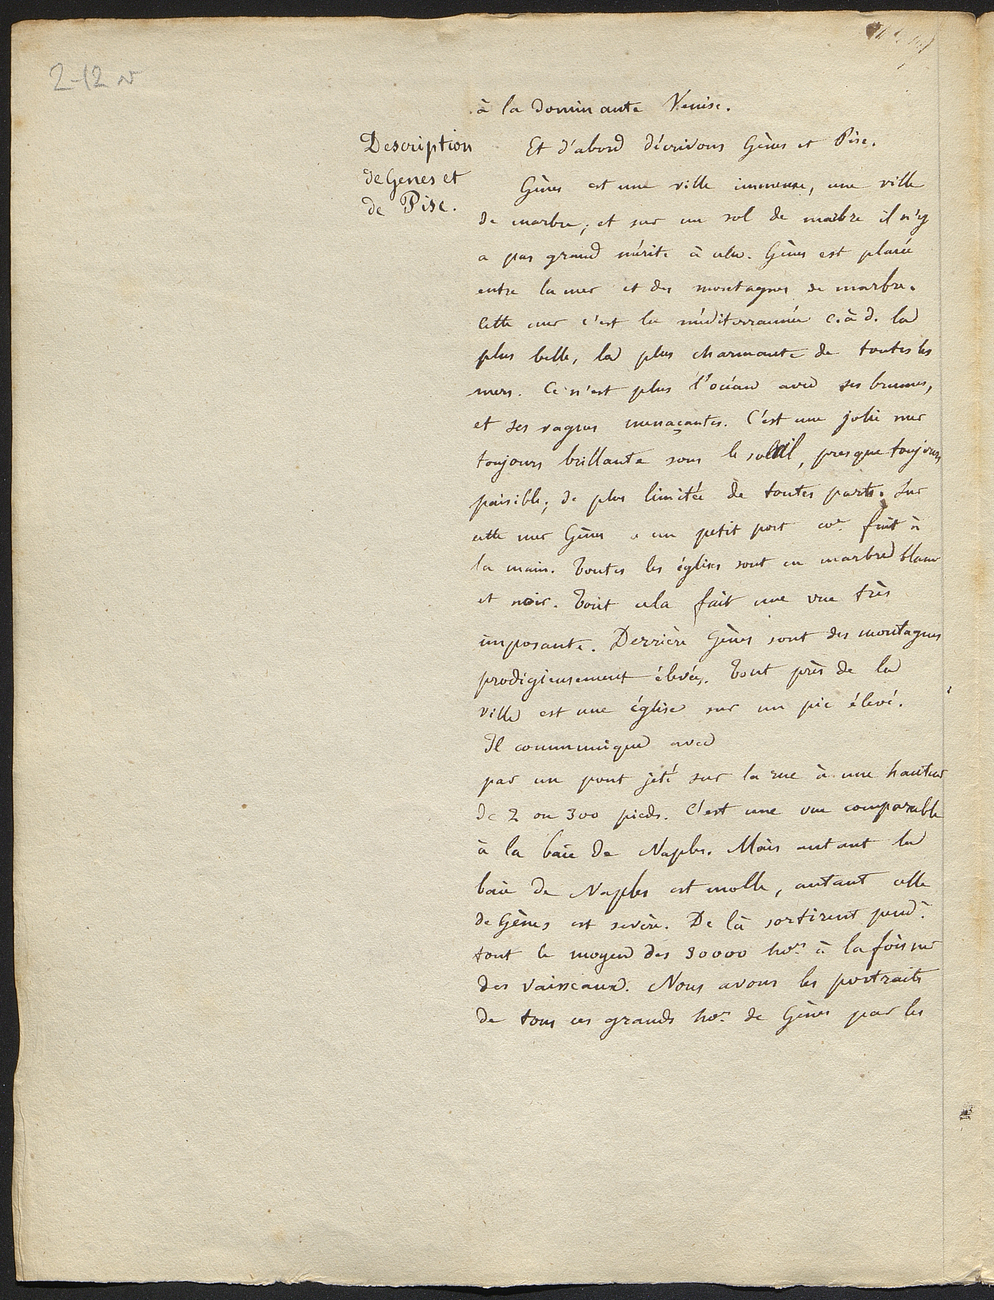 2-12 v
à la dominante Venise.
Description
de Genes et
de Pise.
Et d'abord décrivons Gènes et Pise.
Gènes est une ville immense, une ville
de marbre; et sur un sol de marbre il n'y
a pas grand mérite à cela. Gènes est placée
entre la mer et des montagnes de marbre.
Cette mer c'est la méditerrannée c.à d. la
plus belle, la plus charmante de toutes les
mers. Ce n'est plus l'océan avec ses brumes,
et ses vagues menaçantes. C'est une jolie mer
toujours brillante sous le soleil, presque toujours
paisible; de plus limitée de toutes parts. Sur
cette mer Gènes a un petit port coe. fait à
la main. Toutes les églises sont en marbre blanc
et noir. Tout cela fait une vue très
imposante. Derrière Gènes sont des montagnes
prodigieusement élevées. Tout près de la
ville est une église sur un pic élevé.
Il communique avec
par un pont jeté sur la rue à une hauteur
de 2 ou 300 pieds. C'est une vue comparable
à la baie de Naples. Mais autant la
baie de Naples est molle, autant celle
de Gènes est sévère. De là sortirent pendt.
tout le moyen des 30000 hoes à la fois sur
des vaisseaux. Nous avons les portraits
de tous ces grands hoes de Gènes par les